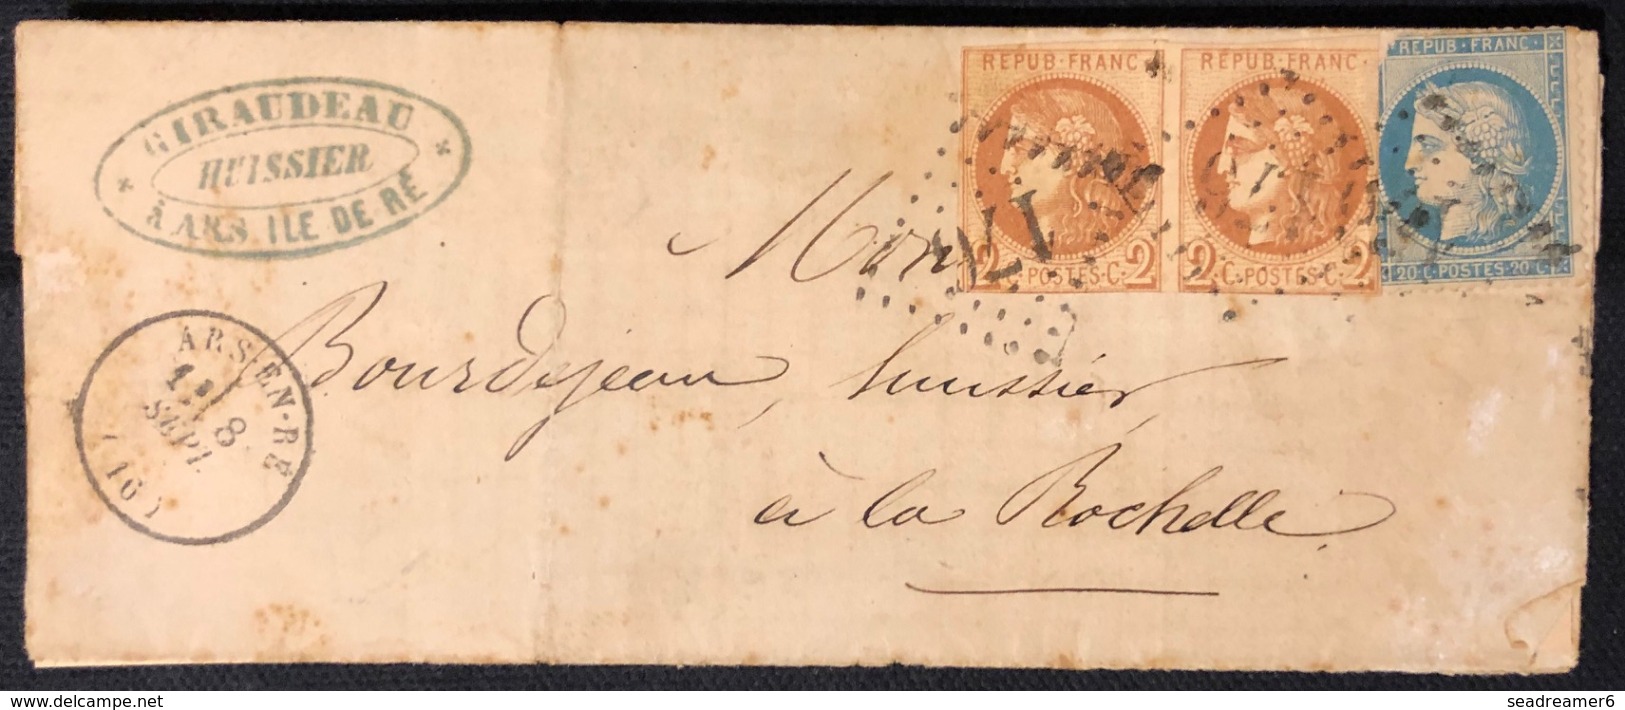 GIRAUDEAU
HUISSIER
À ARS ILE DE RÉ
REPUB·FRANC·
2 C·POSTES·C·2
REPUB·FRANC·
2 C·POSTES·C·2
REPUB·FRANC·
20·C·POSTES·20·C
ARS-EN-RE
8
SEPT.
(16)
Bourdejeau, huissier,
à la Rochelle.
delcampe.net
seadreamer6